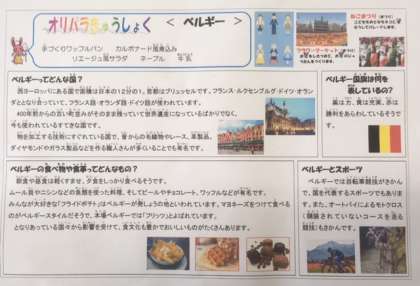 オリパラきゅうしょく
＜ ベルギー ＞
手づくりワッフルパン カルボナード風煮込み
リエージュ風サラダ ネーブル 牛乳
ねこまつり
フラワーマーケット
ベルギーってどんな国？
西ヨーロッパにある国で面積は日本の12分の1。首都はブリュッセルです。フランス・ルクセンブルグ・ドイツ・オラン
ダととなり合っていて、フランス語・オランダ語・ドイツ語が使われています。
400年前からの古い町並みがそのまま残っていて世界遺産になっているばかりでなく、
今も使われているすてきな国です。
物を加工する技術にすぐれている国で、昔からの毛織物やレース、革製品、
ダイヤモンドやガラス製品などを作る職人さんが多くいることでも有名です。
ベルギー国旗は何を
表しているの？
黒は力、黄は充実、赤は
勝利をあらわしているそうで
す。
ベルギーの食べ物や食事ってどんなもの？
朝食や昼食は軽くすませ、夕食をしっかり食べるそうです。
ムール貝やニシンなどの魚類を使った料理、そしてビールやチョコレート、ワッフルなどが有名です。
みんなが大好きな「フライドポテト」はベルギーが発しょうの地といわれています。マヨネーズをつけて食べる
のがベルギースタイルだそうで、本場ベルギーでは「フリッツ」とよばれています。
となりあっている国々から影響を受けて、食文化も豊かでおいしいものがたくさんあります。
ベルギーとスポーツ
ベルギーでは自転車競技がさかん
で、国を代表するスポーツでもありま
す。また、オートバイによるモトクロス
（舗装されていないコースを走る
競技）もさかんです。